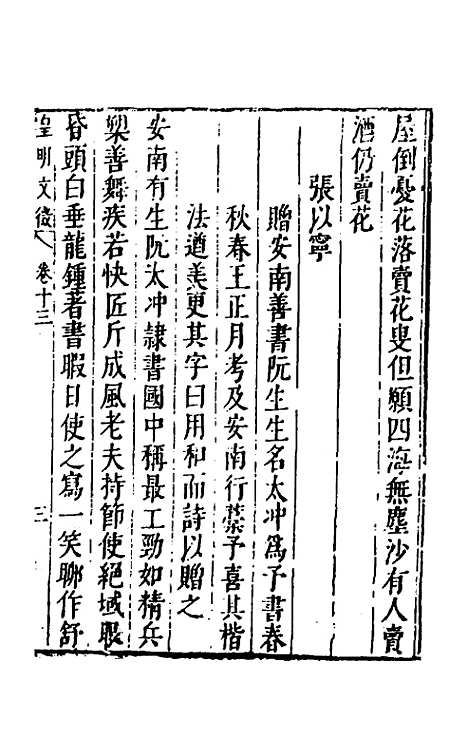 屋倒憂花落賣花叟但願四海無塵沙有人賣
酒仍賣花
張以寧
贈安南善書阮生生名太冲爲予書春
秋春王正月考及安南行藁予喜其楷
法遒美更其字曰用和而詩以贈之
安南有生阮太冲隸書國中稱最工勁如精兵
槊善舞疾若快匠斤成風老夫持節使絕域眼
昏頭白垂龍鍾著書暇日使之寫一笑聊作舒
皇明文徵 卷十三 三